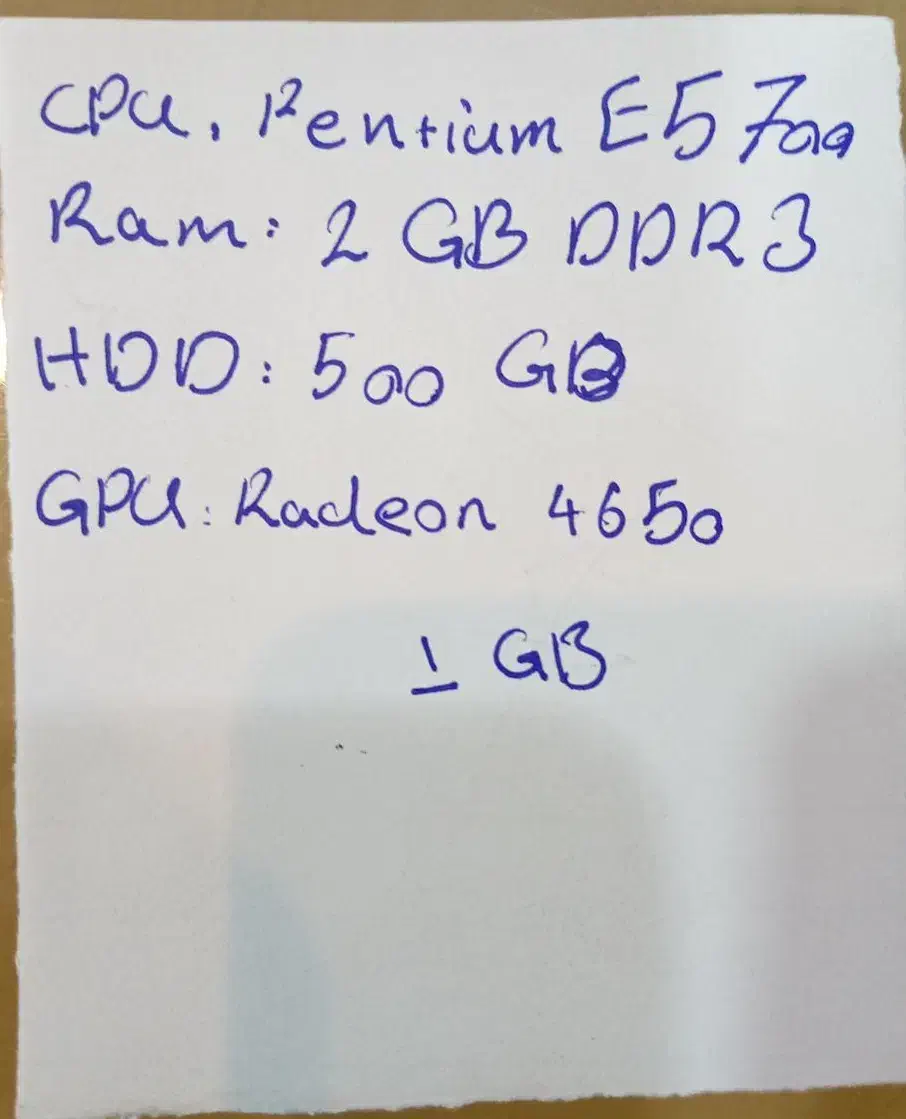 CPU. Pentium E5700
Ram: 2 GB DDR3
HDD: 500 GB
GPU: Radeon 4650
1 GB